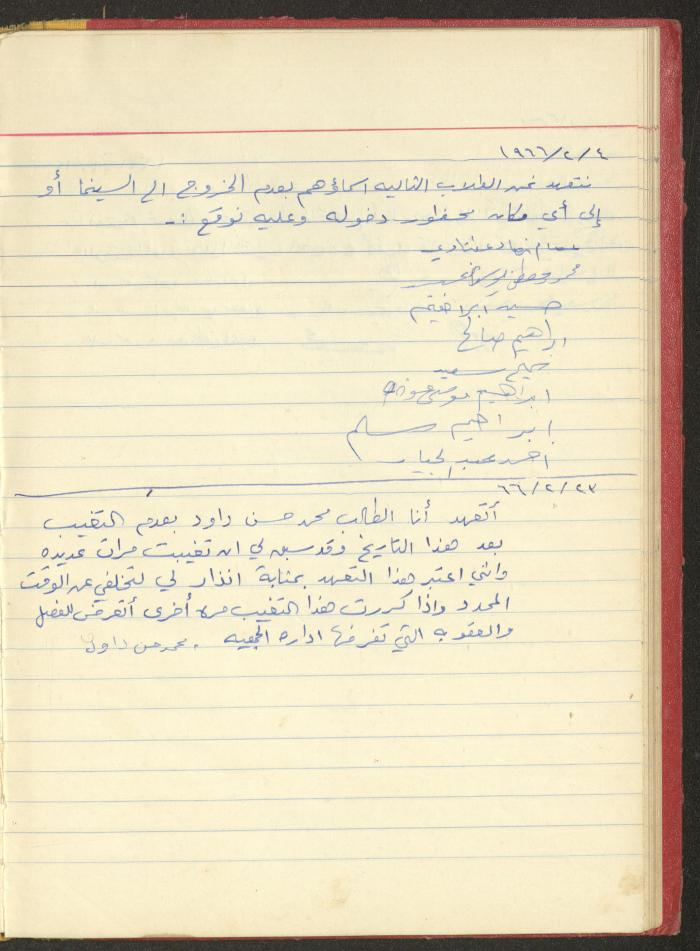 ١٩٦٦/٢/٤
نتعهد نحن الطلاب التاليه اسماؤهم بعدم الخروج الى السينما أو
إلى أي مكان محظور دخوله وعليه نوقع :-
محمد مصطفى
حسين ابراهيم
ابراهيم صالح
سعيد
ابراهيم موسى عوض
ابراهيم سلم
احمد عبد الجبار
٦٦/٢/٢٣
أتعهد أنا الطالب محمد حسن داود بعدم التغيب
بعد هذا التاريخ وقد سبق لي ان تغيبت مرات عديده
وانني اعتبر هذا التعهد بمثابة انذار لي لتخلفي عن الوقت
المحدد واذا كررت هذا التغيب مره أخرى أتعرض للفصل
والعقوبه التي تفرضها اداره الجمعيه . محمد حسن داود